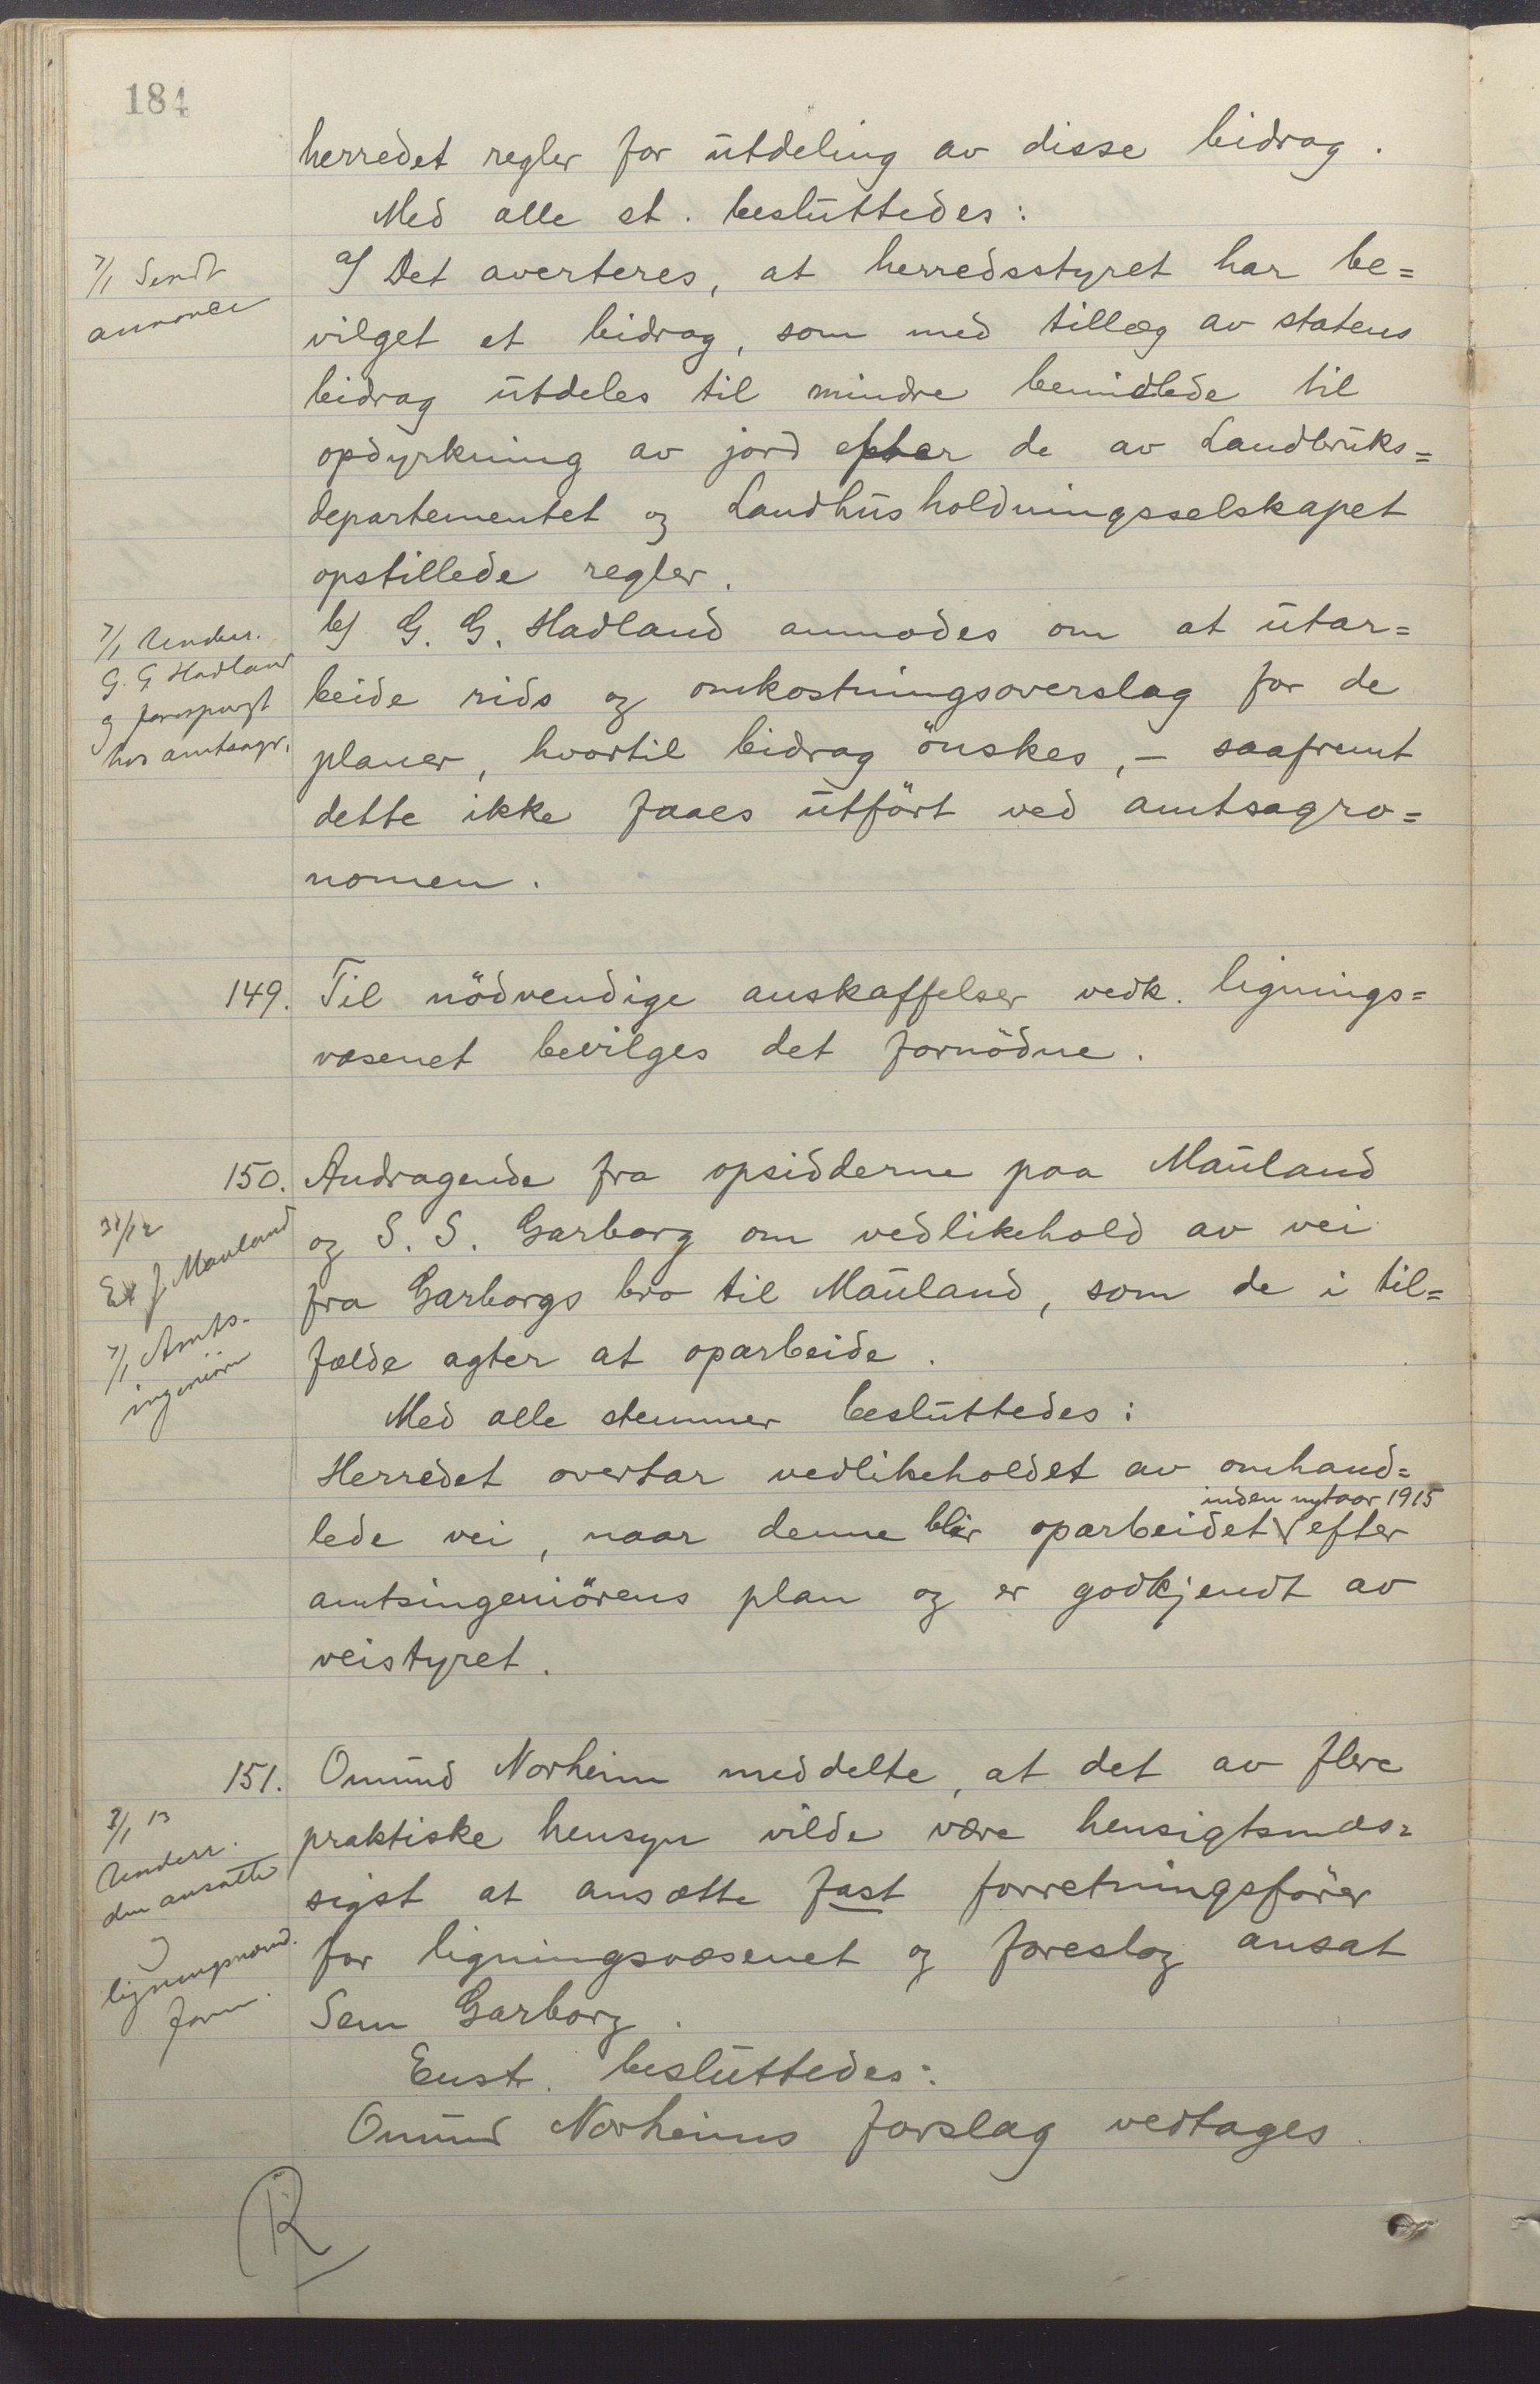 184
herredet regler for utdeling av disse bidrag.
Med alle st. besluttedes:
7/1 Sendt
annonce
a/ Det averteres, at herredsstyret har be=
vilget et bidrag, som med tillæg av statens
bidrag utdeles til mindre bemidlede til
opdyrkning av jord efter de av Landbruks=
departementet og Landhusholdningsselskapet
opstillede regler.
7/1 Underr.
G. G. Hadland
og forespurgt
hos amtsagr.
b/ G. G. Hadland anmodes om at utar=
beide rids og omkostningsoverslag for de
planer, hvortil bidrag önskes, – saafremt
dette ikke faaes utfört ved amtsagro=
nomen.
149. Til nödvendige anskaffelser vedk. lignings=
væsenet bevilges det fornödne.
150. Andragende fra opsidderne paa Mauland
og S. S. Garborg om vedlikehold av vei
fra Garborgs bro til Mauland, som de i til=
fælde agter at oparbeide.
31/12
Ex J. Mauland
7/1 Amts-
ingeniören
Med alle stemmer besluttedes:
Herredet overtar vedlikeholdet av omhand=
inden nytaar 1915
lede vei, naar denne blir oparbeidet efter
amtsingeniörens plan og er godkjendt av
veistyret.
151. Omund Norheim meddelte, at det av flere
praktiske hensyn vilde være hensigtsmæs=
sigst at ansætte fast forretningsförer
for ligningsvæsenet og foreslog ansat
Sem Garborg.
8/1 13
Underr.
den ansatte
og
ligningsnævnd.
form.
Enst. besluttedes:
Omund Norheims forslag vedtages.
R